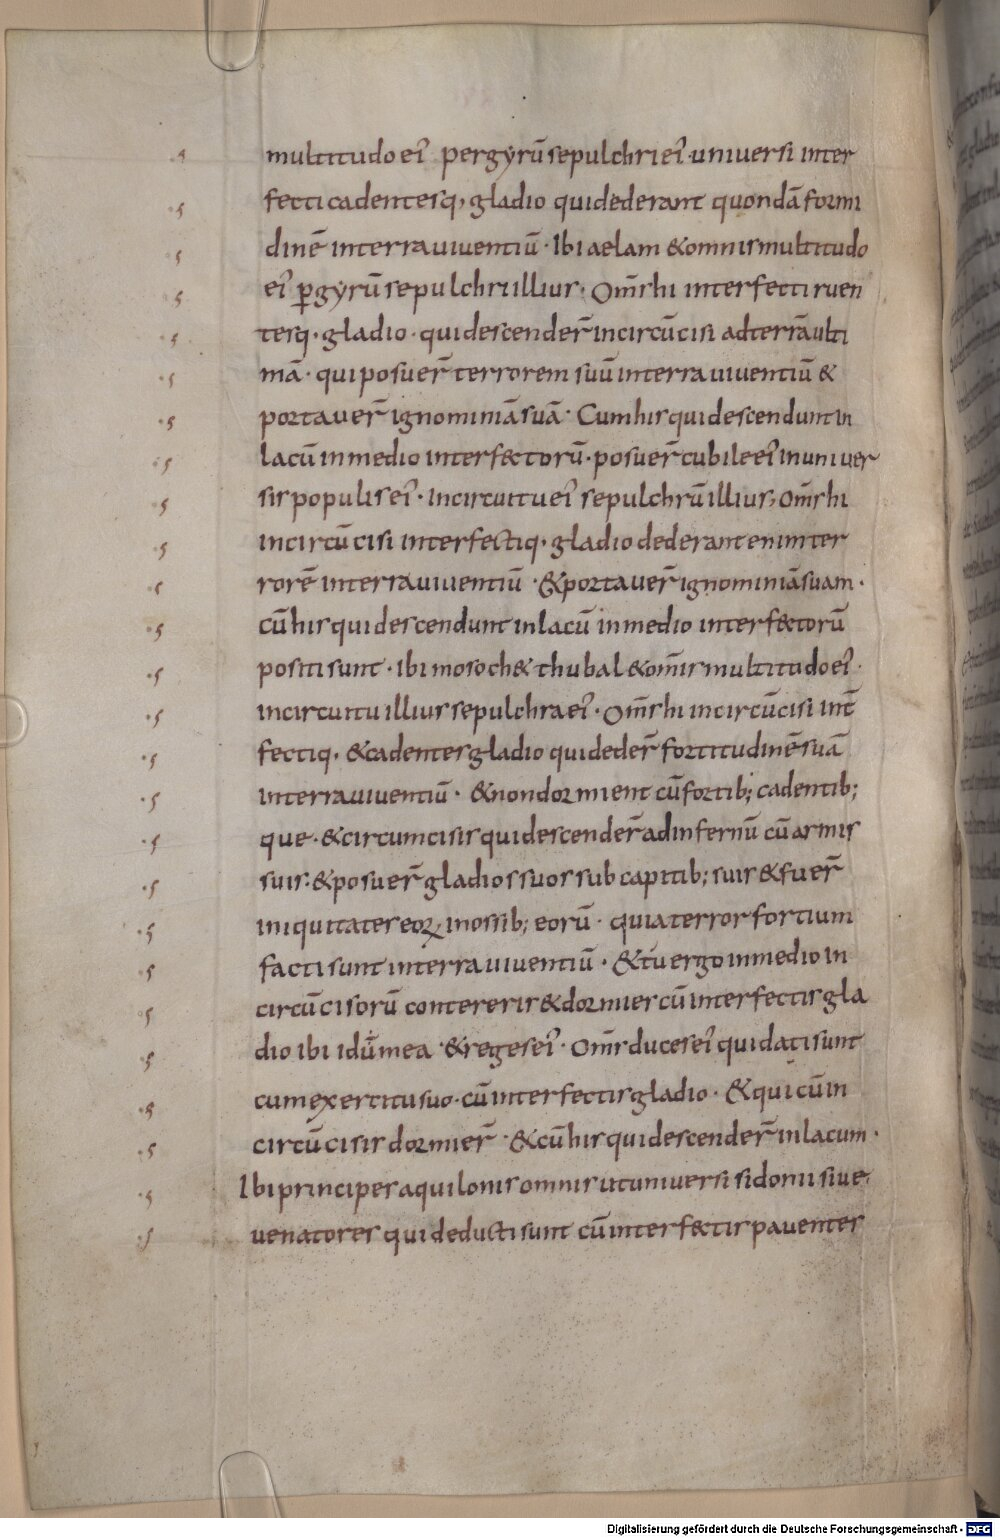 multitudo ei᾽ per gyrū sepulchri ei᾽· universi inter
fecti cadentesq; gladio qui dederant quondā formi
dinē in terra viventiū · Ibi aelam & omnis multitudo
ei᾽ ꝑ gyrū sepulchri illius · Om̄s hi interfecti ruen
tesq · gladio · qui descender̄ in circūcisi ad terrā ulti
mā · qui posuer̄ terrorem suū in terra viventiū &
portaver̄ ignominiā suā · Cum his qui descendunt in
lacū in medio interf&torū · posuer̄ cubile ei᾽ in univer
sis populis ei᾽ · In circuitu ei᾽ sepulchrū illius; om̄s hi
incircūcisi interfectiq · gladio dederant enim ter
rorē in terra viventiū · & portaver̄ ignominiā suam ·
cū his qui descendunt in lacū in medio interf&torū
positi sunt · Ibi mosoch & thubal & om̄is multitudo ei᾽ ·
in circuitu illius sepulchra ei᾽ · Om̄s hi incircūcisi int̄
fectiq · & cadentes gladio qui deder̄ fortitudinē suā
in terra viventiū · & non dormient cū fortib; cadentib;
que · & circumcisis qui descender̄ ad infernū cū armis
suis : & posuer̄ gladios suos sub capitib; suis & fuer̄
iniquitates eoꝝ in ossib; eorū · quia terror fortium
facti sunt in terra viventiū · & tu ergo in medio in
circūcisorū contereris & dormies cū interfectis gla
dio ibi idumea · & reges ei᾽ · Om̄s duces ei᾽ qui dati sunt
cum exercitu suo · cū interfectis gladio · & qui cū in
circūcisis dormier̄ · & cū his qui descender̄ in lacum ·
Ibi principes aquilonis omnis ut universi sidonii sive
venatores qui deducti sunt cū interf&tis paventes
Digitalisierung gefördert durch die Deutsche Forschungsgemeinschaft - DFG